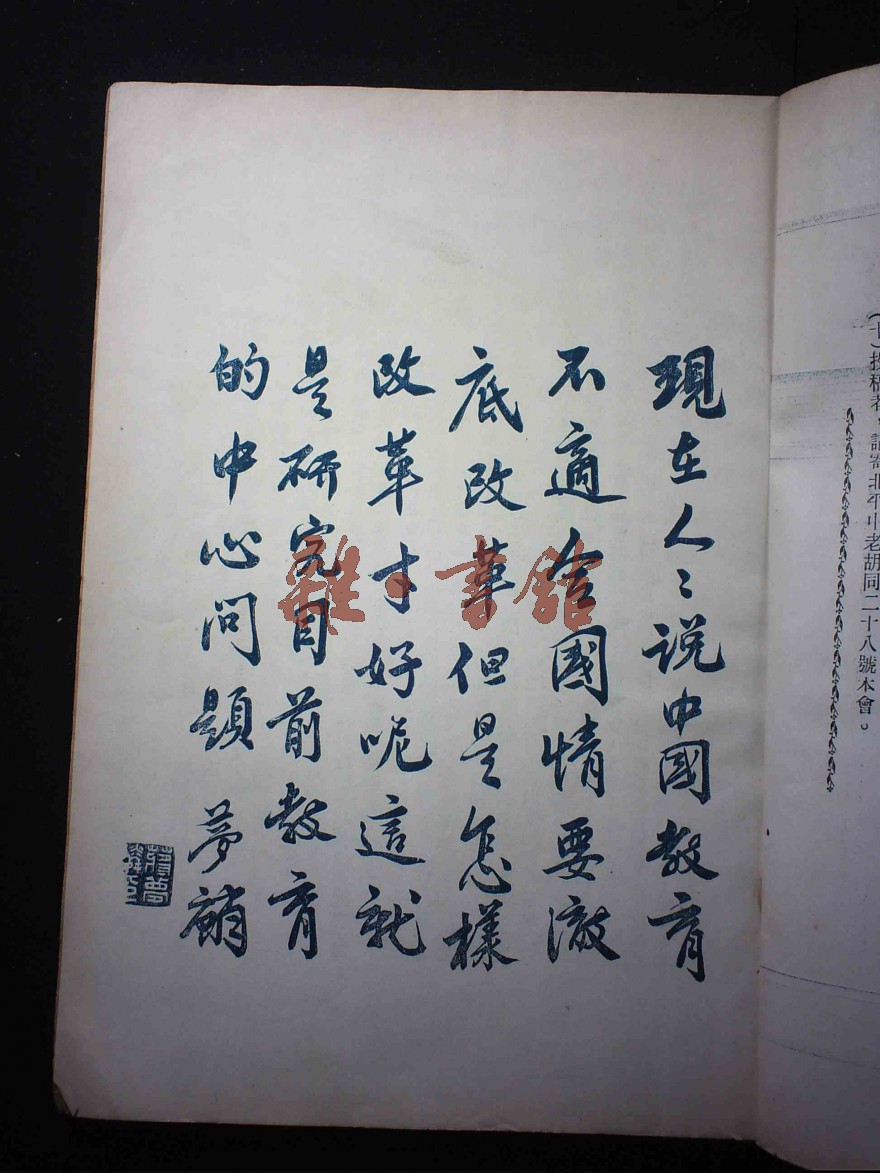 現在人〻説中國教育
不適合國情要澈
底改革但是怎樣
改革才好呢這就
是研究目前教育
的中心问題 夢麟
雜·書館
投稿者，請寄北平中老胡同二十八號本會。